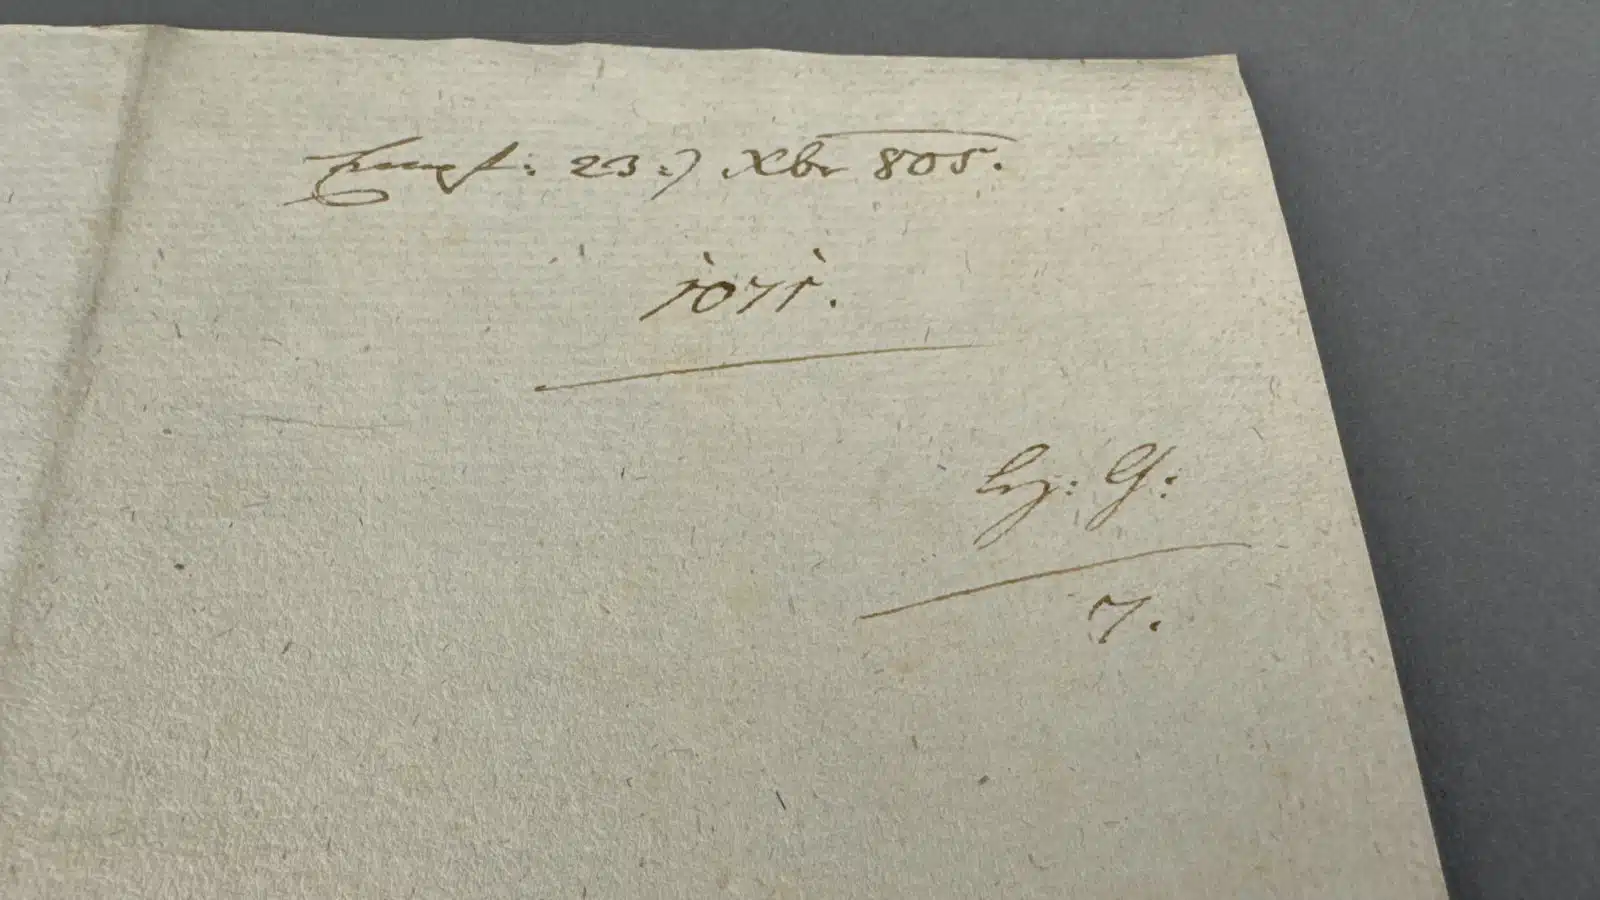 Empf: 23:) Xbr 805.
1071.
G:
7.